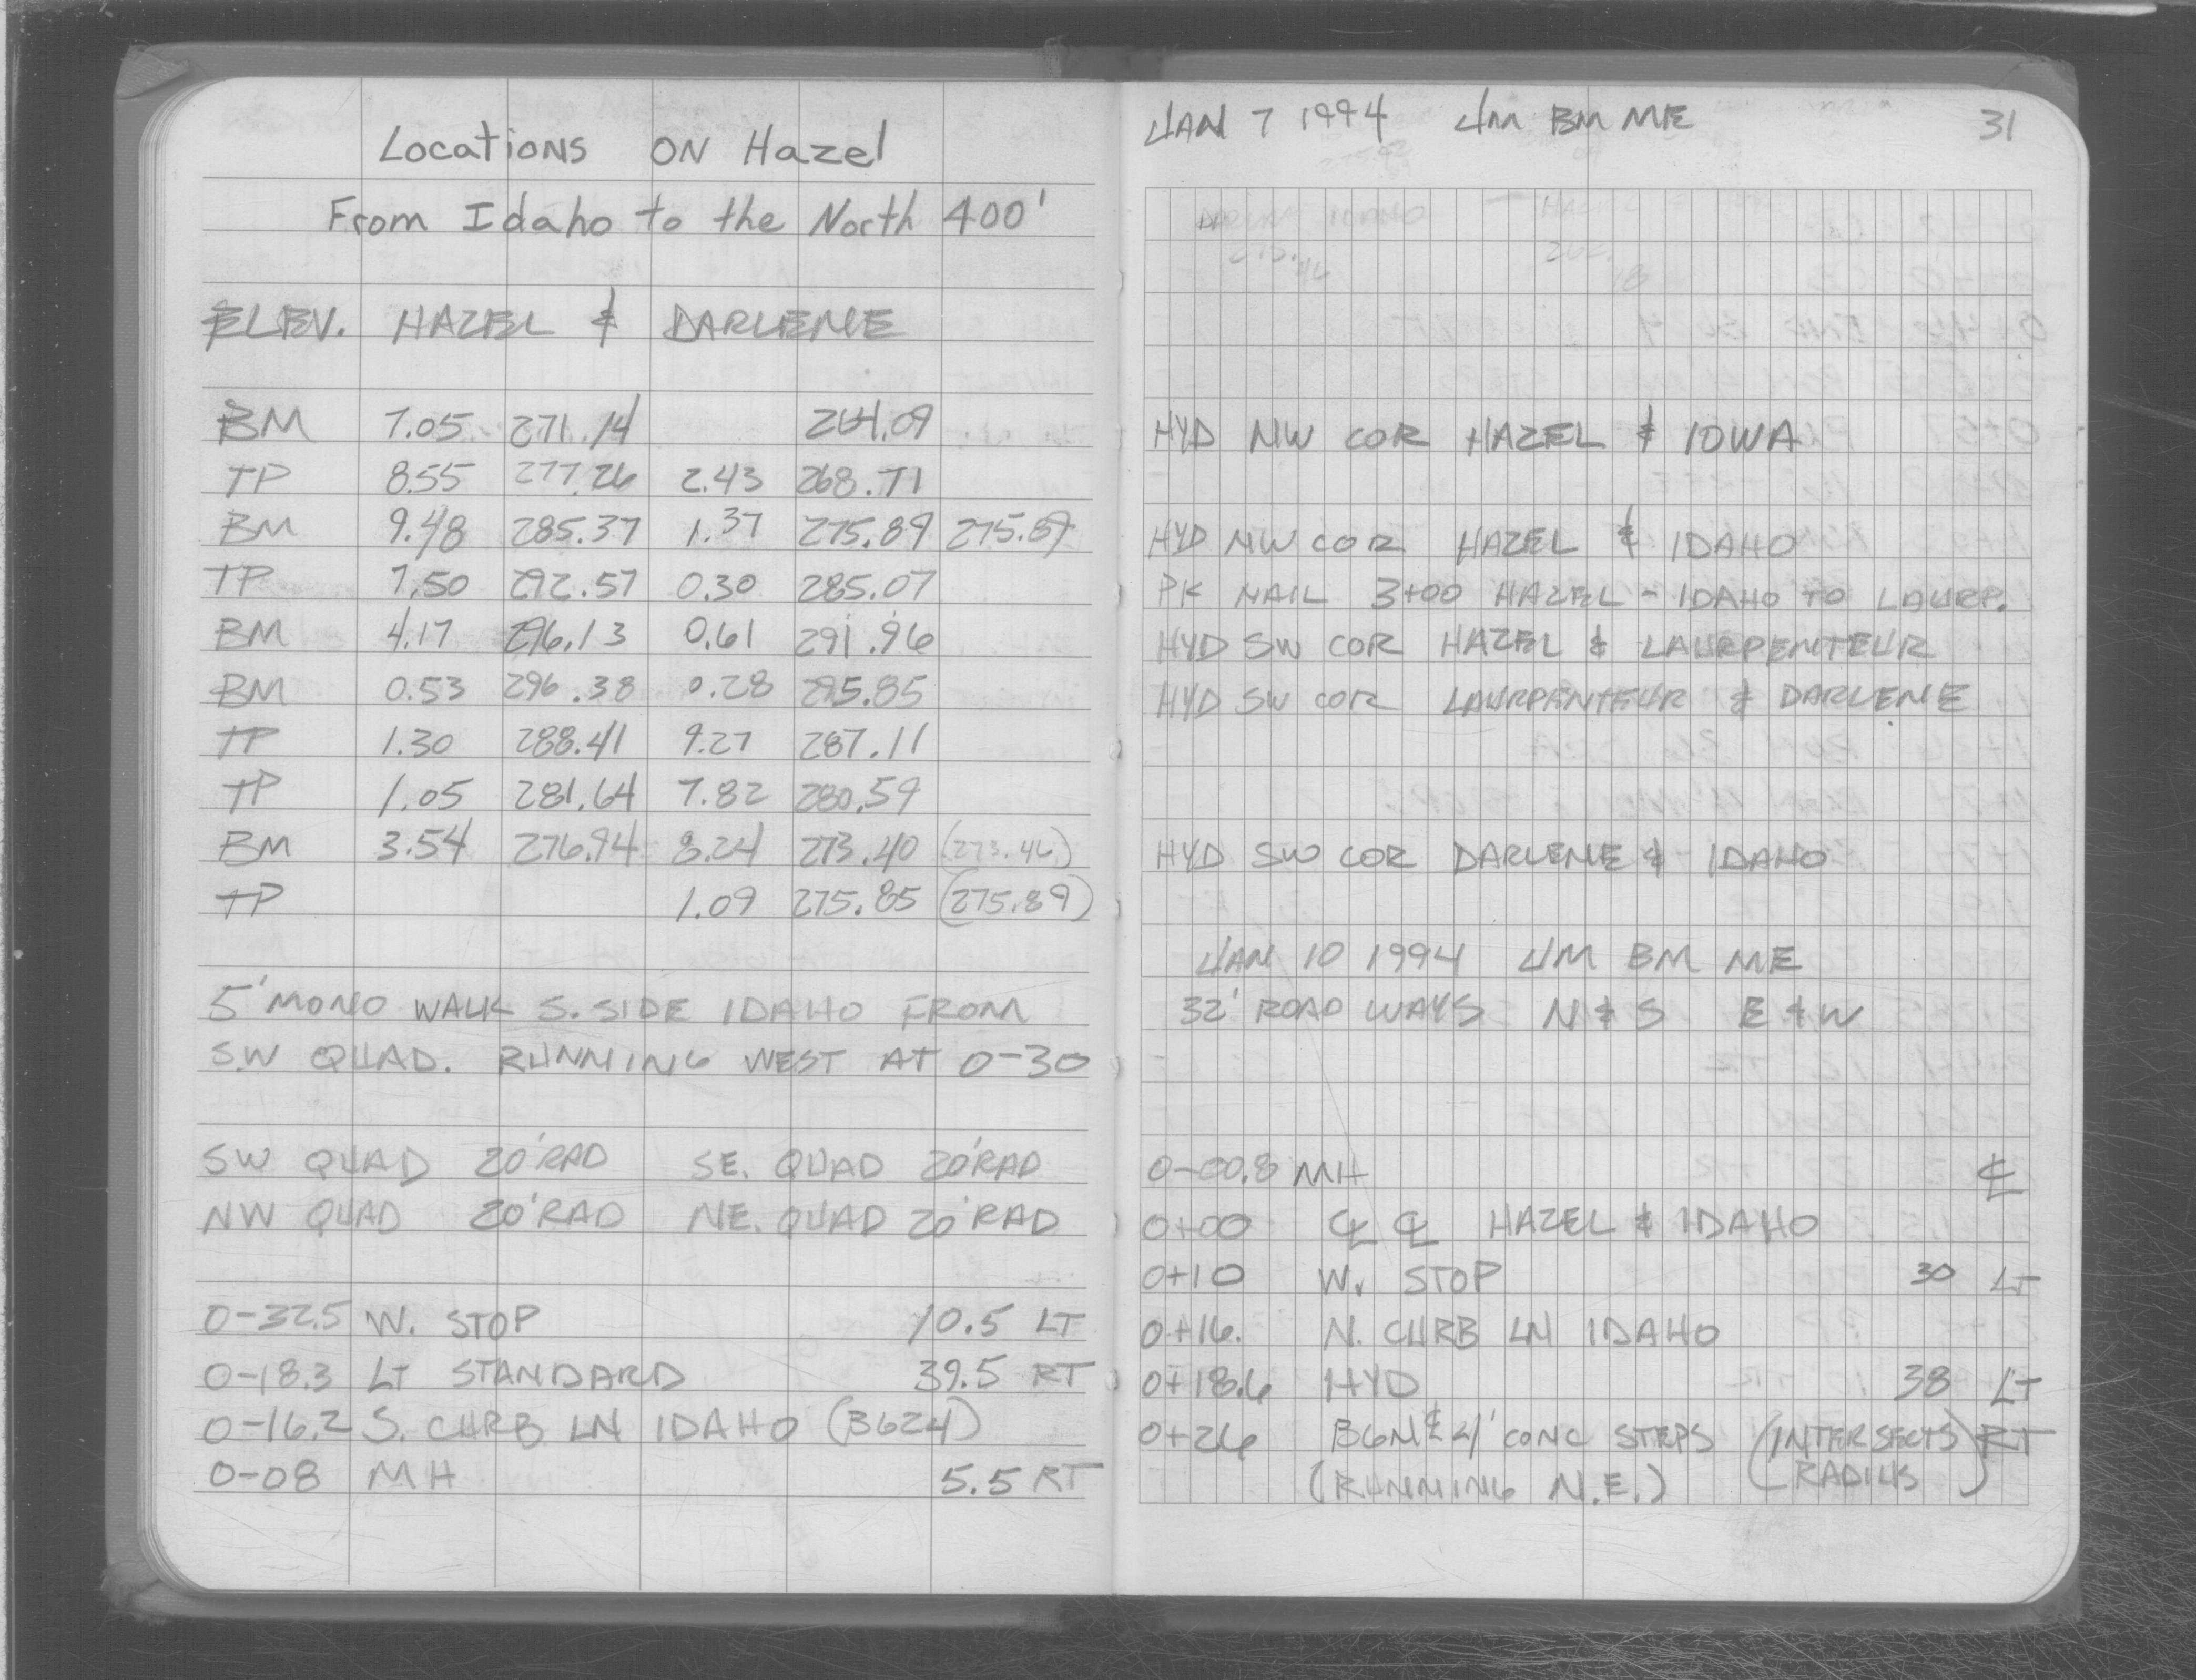 Locations ON Hazel
From Idaho to the North 400'
ELEV. HAZEL & DARLENE
BM 7.05 271.14 264.09
TP 8.55 277.26 2.43 268.71
BM 9.48 285.37 1.37 275.89 275.89
TP 7.50 292.57 0.30 285.07
BM 4.17 296.13 0.61 291.96
BM 0.53 296.38 0.28 295.85
TP 1.30 288.41 9.27 287.11
TP 1.05 281.64 7.82 280.59
BM 3.54 276.94 8.24 273.40 (273.46)
TP 1.09 275.85 (275.89)
5' MONO WALK S. SIDE IDAHO FROM
S.W QUAD. RUNNING WEST AT 0-30
SW QUAD 20' RAD SE. QUAD 20' RAD
NW QUAD 20' RAD NE. QUAD 20' RAD
0-32.5 W. STOP 10.5 LT
0-18.3 LT STANDARD 39.5 RT
0-16.2 S. CURB LN IDAHO (B624)
0-08 MH 5.5 RT
JAN 7 1994 JM BM ME 31
HYD NW COR HAZEL & IOWA
HYD NW COR HAZEL & IDAHO
PK NAIL 3+00 HAZEL - IDAHO TO LAURP.
HYD SW COR HAZEL & LAURPENTEUR
HYD SW COR LAURPENTEUR & DARLENE
HYD SW COR DARLENE & IDAHO
JAN 10 1994 JM BM ME
32' ROAD WAYS N & S E & W
0-00.8 MH ℄
0+00 ℄ ℄ HAZEL & IDAHO
0+10 W. STOP 30 LT
0+16. N. CURB LN IDAHO
0+18.6 HYD 38 LT
0+26 BGN ℄ 4' CONC STEPS (INTERSECTS RT
(RUNNING N.E.) RADIUS)